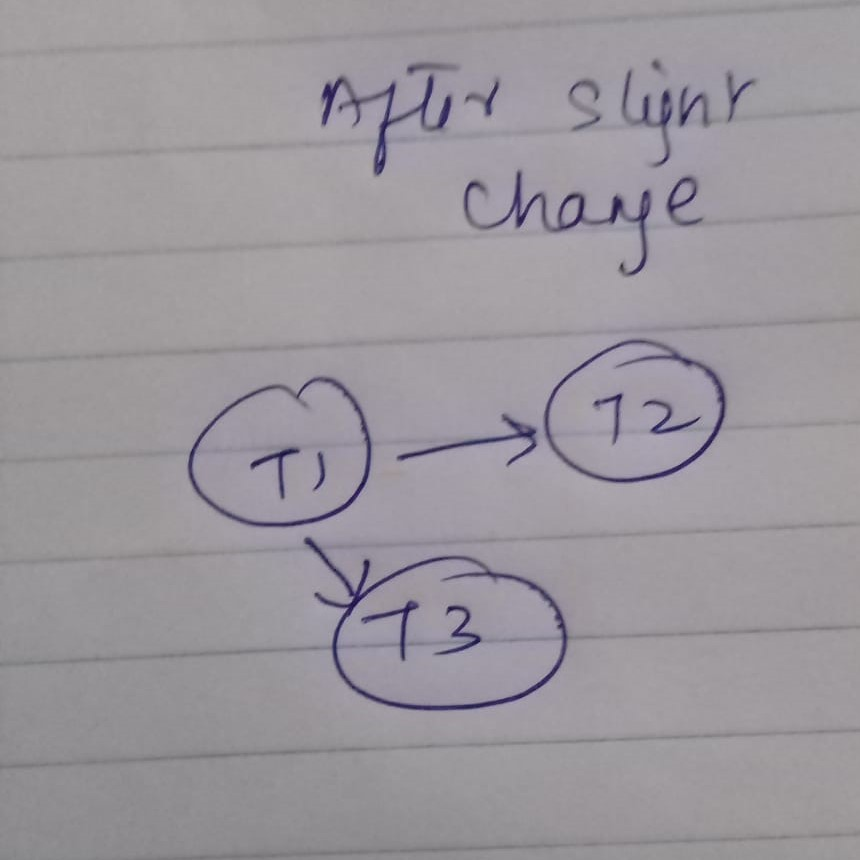 After slight
change
T1
T2
T3